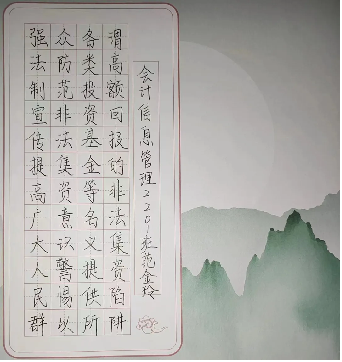 强法制宣传提高广大人民群
众防范非法集资意识警惕以
各类投资基金等名义提供所
谓高额回报的非法集资陷阱
会计信息管理2201班范金玲